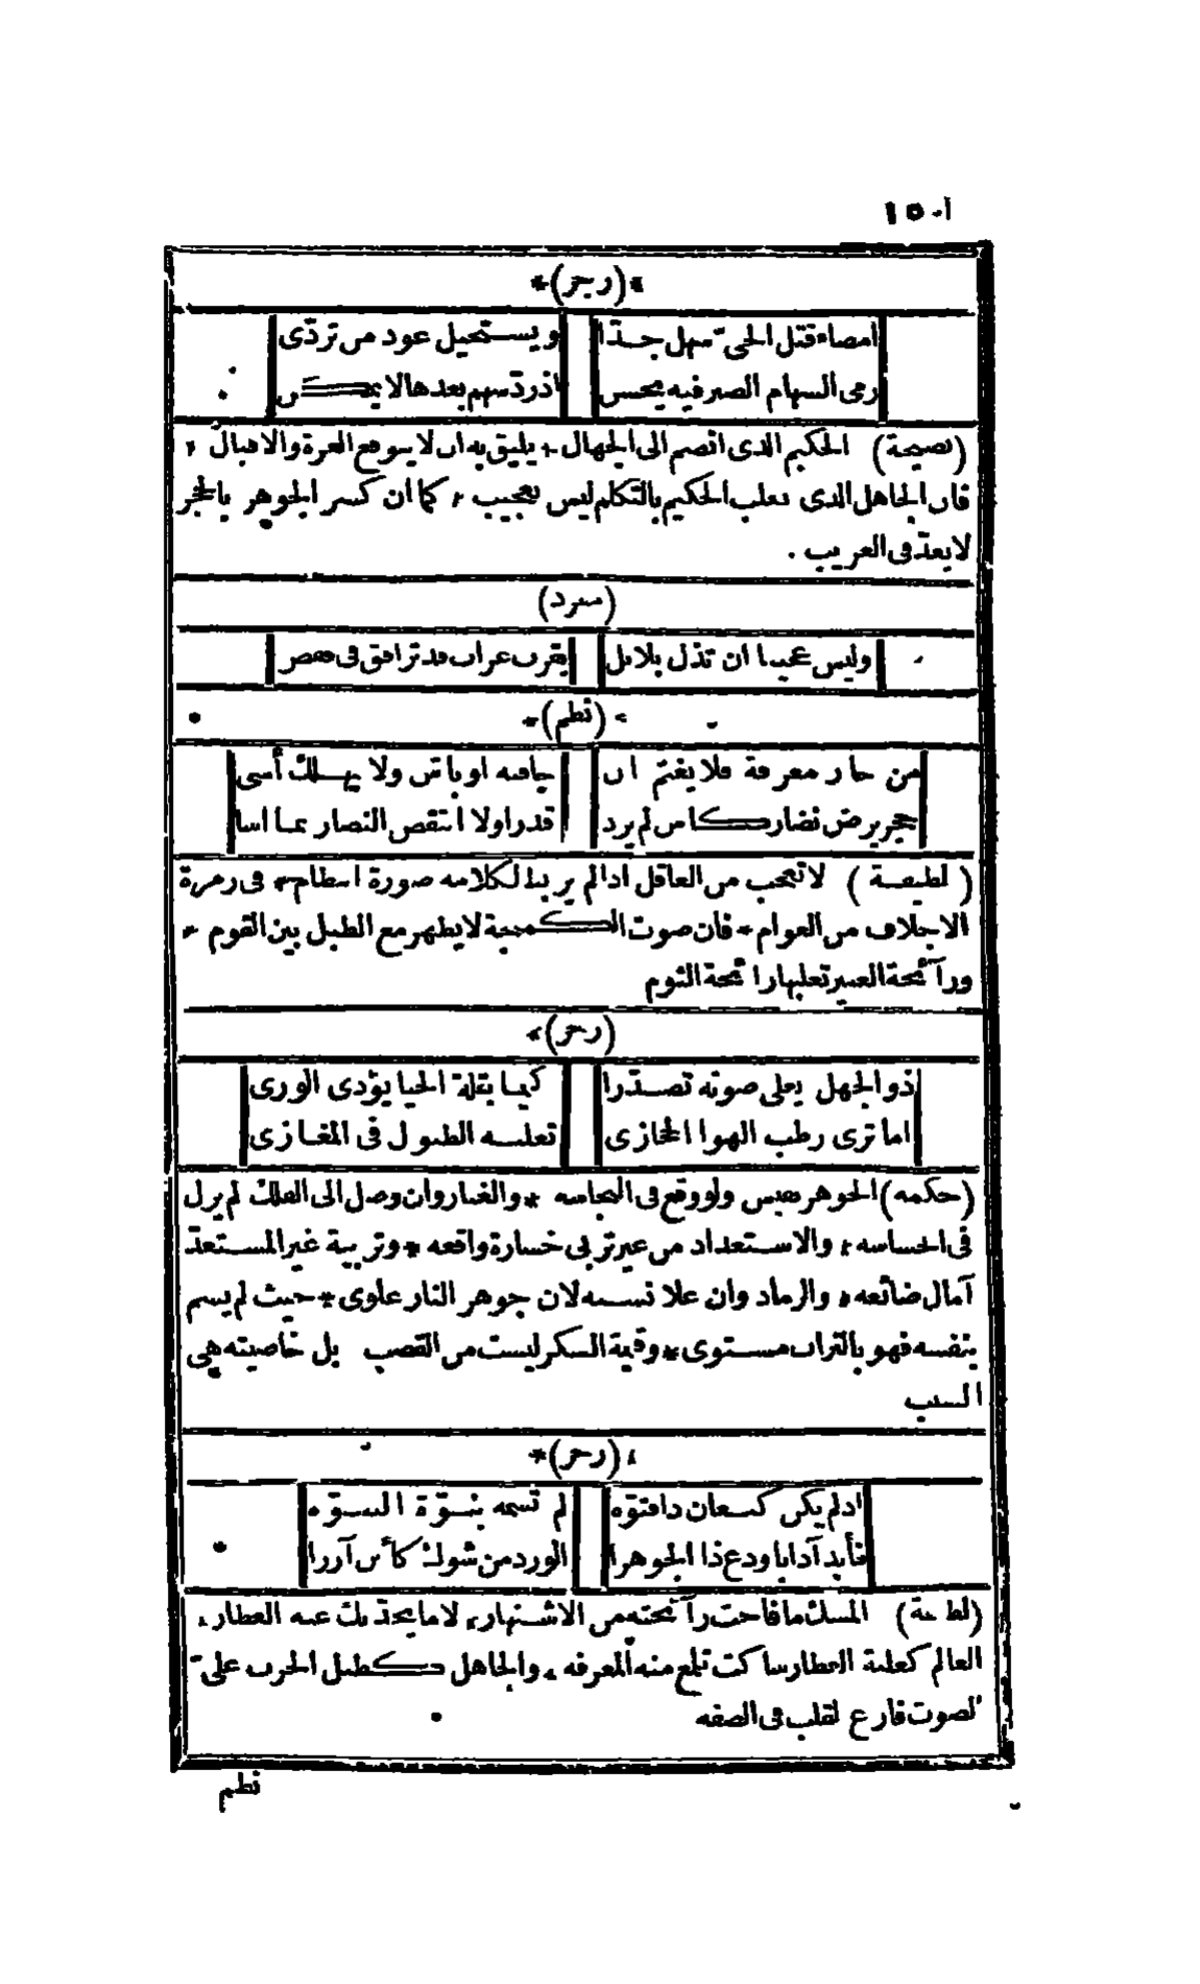 ١٥٠
*(رجز)*
امضاء قتل الحىّ سهل جدّا ويستحيل عود من تردّى
رمى السهام الصبر فيه يحسن اذ ردّ سهم بعدها لا يمكن
(نصيحة) الحكيم الذى انضم الى الجهال * يليق به ان لا يتوقع العزة والاقبال *
فان الجاهل الذى تغلب الحكيم بالتكلم ليس بعجيب * كما ان كسر الجوهر بالحجر
لا يعدّ فى الغريب .
(مفرد)
وليس عجيبا ان تذل بلابل بقرب غراب قد ترافق فى قفص
*(نظم)*
من حاز معرفة فلا يغتم ان جافـه اوباش ولا يهلك أسى
حجر يرض نضار كاس لم يزد قدرا ولا انتقص النضار بما اسا
(لطيفة) لا تعجب من العاقل اذا لم ير بدا لكلامه صورة انتظام * فى زمرة
الاجلاف من العوام * فان صوت الكمنجة لا يظهر مع الطبل بين القوم *
ورآئحة العبير تغلبها رائحة الثوم
(رجز)*
ذو الجهل يعلى صوته تصدّرا كيما بقلة الحيا يؤذى الورى
اما ترى رطب الهوا الحجازى تغلبه الطبول فى المغازى
(حكمة) الجوهر نفيس ولو وقع فى النجاسه * والغبار وان وصل الى الفلك لم يزل
فى الخساسه * والاستعداد من غير تربى خسارة واقعه * وتربية غير المستعدّ
آمال ضائعه * والرماد وان علا نسبه لان جوهر النار علوى * حيث لم يسم
بنفسه فهو بالتراب مستوى * وقيمة السكر ليست من القصب بل خاصيته هى
السبب
*(رجز)*
اذ لم يكن كنعان ذا فتوّه لم تسمه بنوّة النبوّه
فأبد آدابا ودع ذا الجوهرا الورد من شوك كأس آزرا
(لطيفة) المسك ما فاحت رآئحته من الاشتهار * لا ما يحدّثك عنه العطار *
العالم كعلبة العطار ساكت تلمع منه المعرفه * والجاهل كطبل الحرب علىّ
الصوت فارغ القلب فى الصفه
نظم